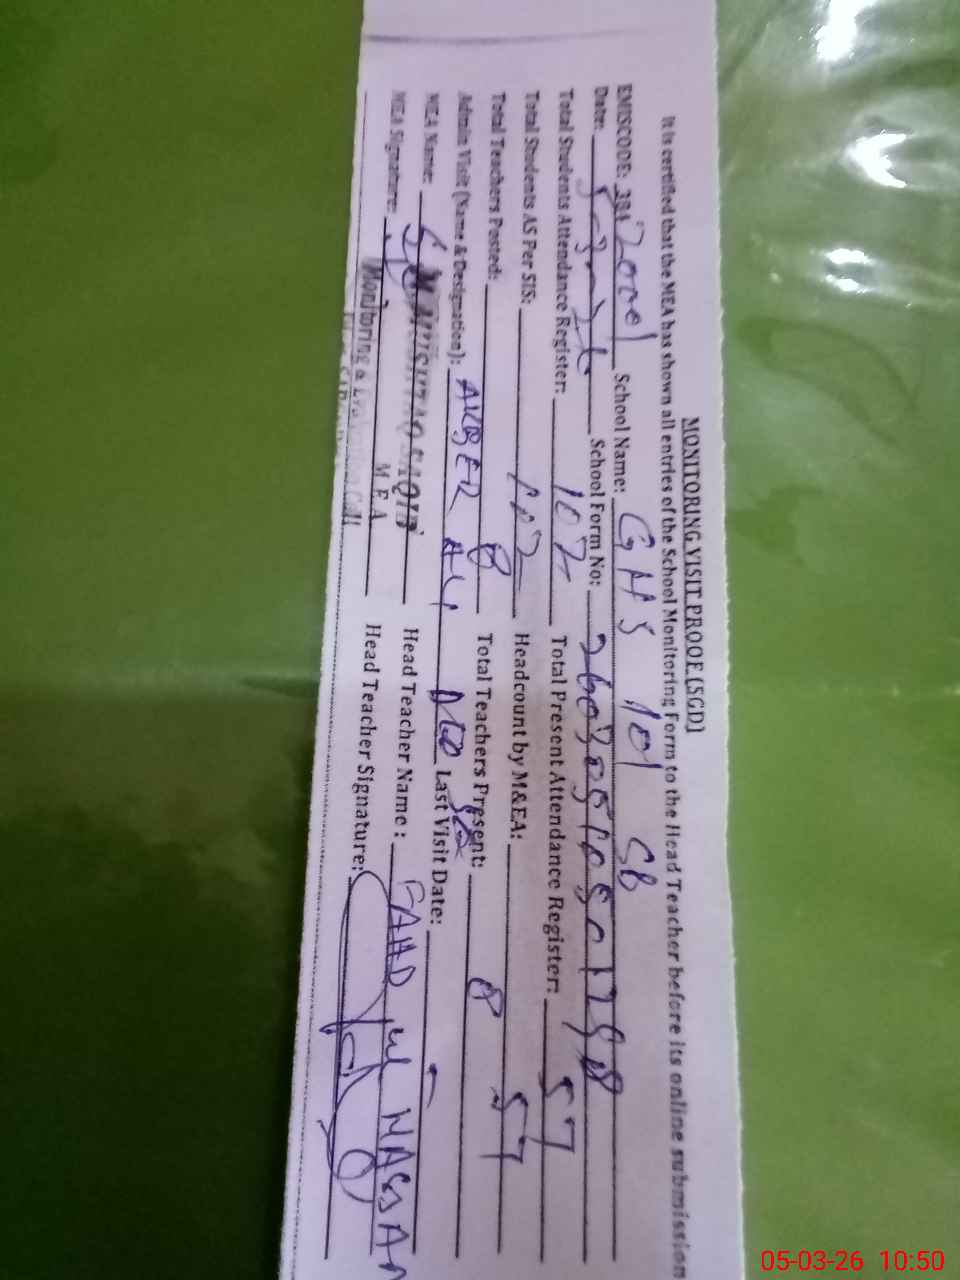 MONITORING VISIT PROOF (SGD)
It is certified that the MEA has shown all entries of the School Monitoring Form to the Head Teacher before its online submission
EMISCODE: 38420001 School Name: GHS 101 SB
Date: 5-3-26 School Form No:
Total Students Attendance Register: 102 Total Present Attendance Register: 57
Total Students AS Per SIS: 102 Headcount by M&EA: 57
Total Teachers Posted: 8 Total Teachers Present: 8
Admin Visit (Name & Designation): AKBER ALI Last Visit Date:
MEA Name: Head Teacher Name: FAHD ul HASSAN
MEA Signature: M E A Head Teacher Signature:
Monitoring & Evaluation Cell
05-03-26 10:50